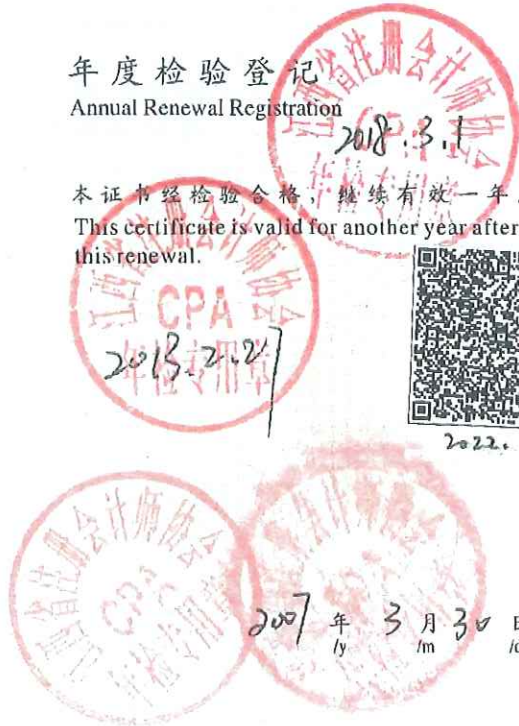 年度检验登记
Annual Renewal Registration
江西省注册会计师协会
CPA
年检专用章
2018.3.1
本证书经检验合格，继续有效一年。
This certificate is valid for another year after
this renewal.
江西省注册会计师协会
CPA
年检专用章
2013.2.27
2022.
江西省注册会计师协会
CPA
年检专用章
2007 年 3 月 30 日
/y /m /d